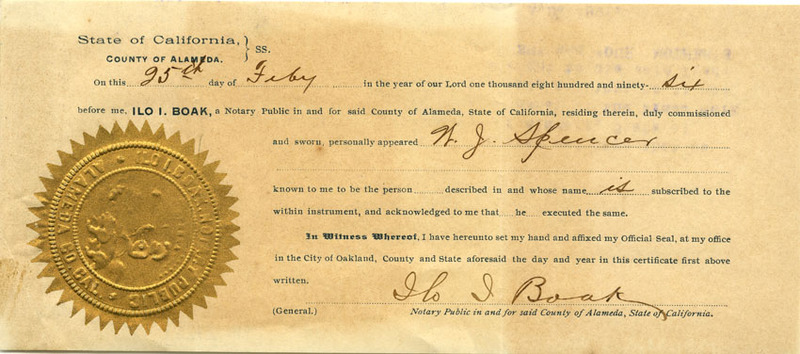 State of California,
COUNTY OF ALAMEDA. } SS.
On this 25th day of Feby in the year of our Lord one thousand eight hundred and ninety- six
before me, ILO I. BOAK, a Notary Public in and for said County of Alameda, State of California, residing therein, duly commissioned
and sworn, personally appeared W. J. Spencer
known to me to be the person described in and whose name is subscribed to the
within instrument, and acknowledged to me that he executed the same.
In Witness Whereof, I have hereunto set my hand and affixed my Official Seal, at my office
in the City of Oakland, County and State aforesaid the day and year in this certificate first above
written.
Ilo I Boak
(General.) Notary Public in and for said County of Alameda, State of California.